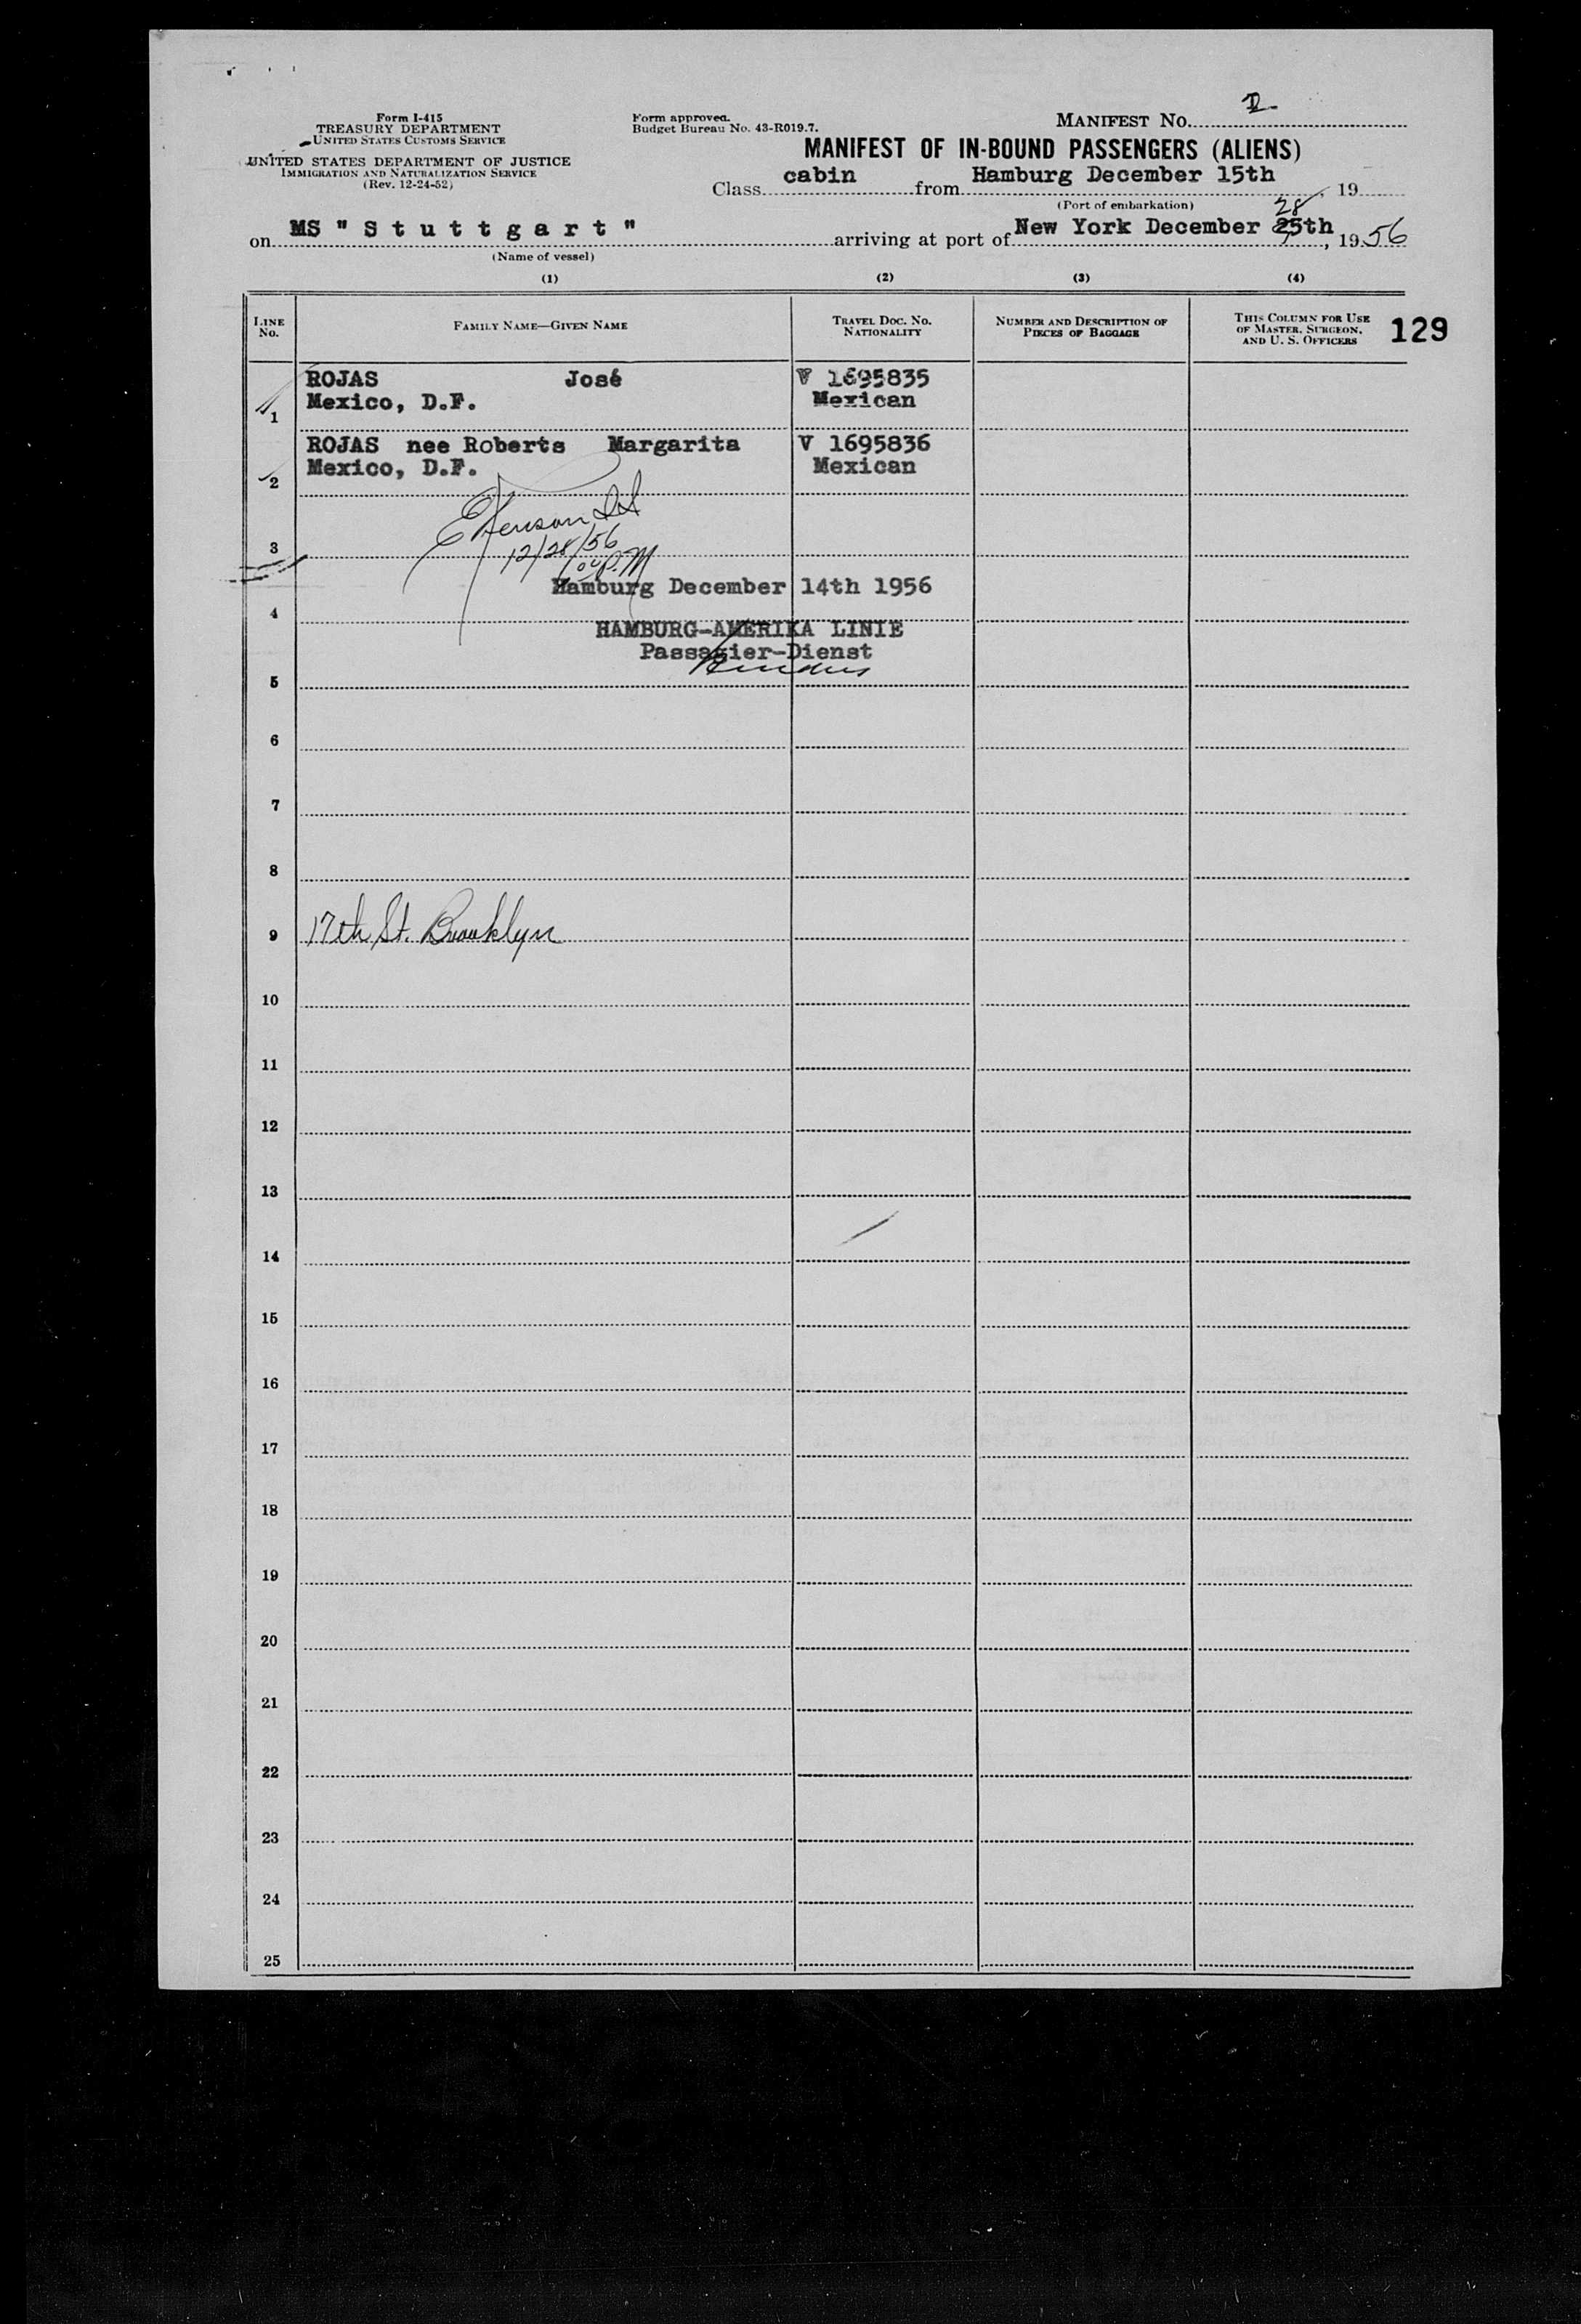 Form I-415
TREASURY DEPARTMENT
UNITED STATES CUSTOMS SERVICE
UNITED STATES DEPARTMENT OF JUSTICE
IMMIGRATION AND NATURALIZATION SERVICE
(Rev. 12-24-52)
Form approved.
Budget Bureau No. 43-R019.7.
MANIFEST NO.
MANIFEST OF IN-BOUND PASSENGERS (ALIENS)
Class cabin from Hamburg December 15th, 19
(Port of embarkation)
28
on MS "Stuttgart" arriving at port of New York December 25th, 1956
(Name of vessel)
(1) (2) (3) (4)
LINE NO. FAMILY NAME—GIVEN NAME TRAVEL DOC. NO. NATIONALITY NUMBER AND DESCRIPTION OF PIECES OF BAGGAGE THIS COLUMN FOR USE OF MASTER, SURGEON, AND U. S. OFFICERS 129
ROJAS José V 1695835
1 Mexico, D.F. Mexican
ROJAS nee Roberts Margarita V 1695836
2 Mexico, D.F. Mexican
12/28/56
3
P.M
Hamburg December 14th 1956
4
HAMBURG-AMERIKA LINIE
Passagier-Dienst
5
6
7
8
9 17th St. Brooklyn
10
11
12
13
14
15
16
17
18
19
20
21
22
23
24
25